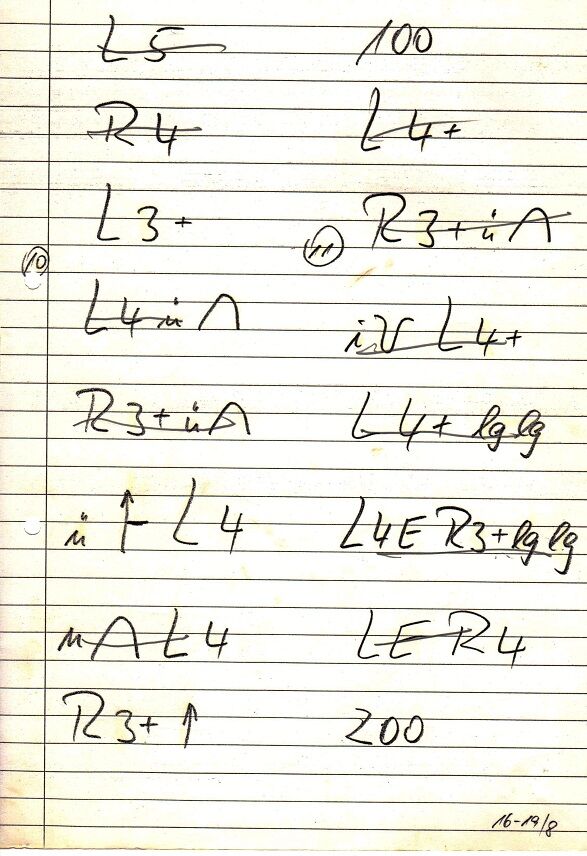 L 5
R 4
L 3 +
10
L 4 ü Λ
R 3 + ü Λ
ü ↑ L 4
L 4
R 3 + ↑
100
L 4 +
11
R 3 + ü Λ
L 4 +
L 4 + lg lg
L 4 E R 3 + lg lg
L E R 4
200
16-19/8